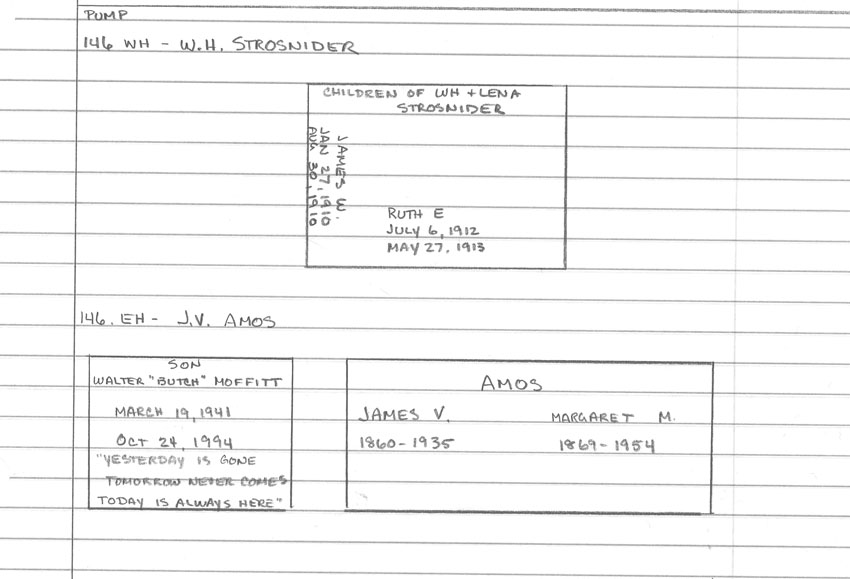 PUMP
146 WH - W.H. STROSNIDER
CHILDREN OF WH + LENA
STROSNIDER
JAMES W.
JAN 27, 1910
AUG 30, 1910
RUTH E
JULY 6, 1912
MAY 27, 1913
146. EH - J.V. AMOS
SON
WALTER "BUTCH" MOFFITT
MARCH 19, 1941
OCT 24, 1994
"YESTERDAY IS GONE
TOMORROW NEVER COMES
TODAY IS ALWAYS HERE"
AMOS
JAMES V. MARGARET M.
1860-1935 1869-1954